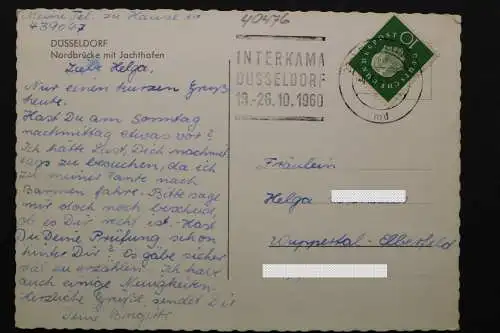 Meine Tel. zu Hause is
439047
40476
DÜSSELDORF
Nordbrücke mit Jachthafen
INTERKAMA
DÜSSELDORF
19.-26.10.1960
DEUTSCHE BUNDESPOST
10
md
Liebe Helga,
Nur einen kurzen Gruß
heute.
Hast Du am Sonntag
nachmittag etwas vor?
Ich hätte Lust, Dich nachmit-
tags zu besuchen, da ich
zu meiner Tante nach
Barmen fahre. Bitte sage
mir doch noch bescheid,
ob es Dir recht ist. - Hast
Du Deine Prüfung schon
hinter Dir? Es gäbe sicher
viel zu erzählen. Ich habe
auch einige Neuigkeiten.
Herzliche Grüße, sendet Dir
Deine
Fräulein
Helga
Wuppertal-Elberfeld